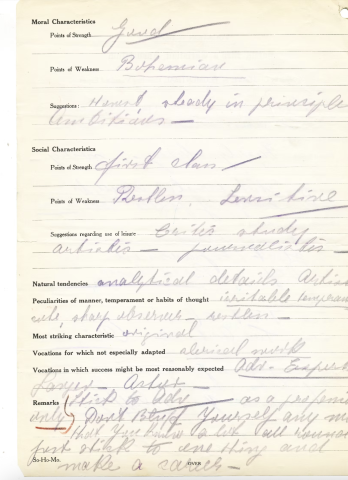 Moral Characteristics
Points of Strength Good
Points of Weakness Bohemian
Suggestions: Honest steady in principle
Ambitious —
Social Characteristics
Points of Strength first class
Points of Weakness Restless, Sensitive
Suggestions regarding use of leisure Critic study
artistic — journalistic —
Natural tendencies analytical details
Peculiarities of manner, temperament or habits of thought irritable
sharp observer — restless —
Most striking characteristic original
Vocations for which not especially adapted clerical work
Vocations in which success might be most reasonably expected Adv. Expert
Artist —
Remarks Stick to Adv — as a profession
only Don't Yourself any
than You a lot all
just stick to one thing and
make a
So-Ho-Mo. OVER